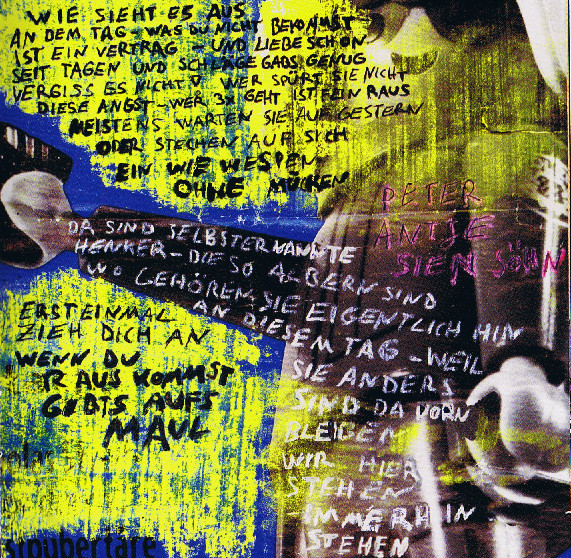 WIE SIEHT ES AUS
AN DEM TAG - WAS DU NICHT BEKOMMST
IST EIN VERTRAG - UND LIEBE SCHON
SEIT TAGEN UND SCHLÄGE GABS GENUG
VERGISS ES NICHT WER SPÜRT SIE NICHT
DIESE ANGST - WER 3x GEHT IST FEIN RAUS
MEISTENS WARTEN SIE AUF GESTERN
ODER STECHEN AUF SICH
EIN WIE WESPEN
OHNE MÜCKEN
PETER
ANTJE
SIEN SÖHN
DA SIND SELBSTERNANNTE
HENKER - DIE SO ALBERN SIND
WO GEHÖREN SIE EIGENTLICH HIN
AN DIESEM TAG - WEIL
SIE ANDERS
SIND DA VORN
BLEIBEN
WIR HIER
STEHEN
IMMERHIN
STEHEN
ERSTEINMAL
ZIEH DICH AN
WENN DU
RAUS KOMMST
GIBTS AUFS
MAUL